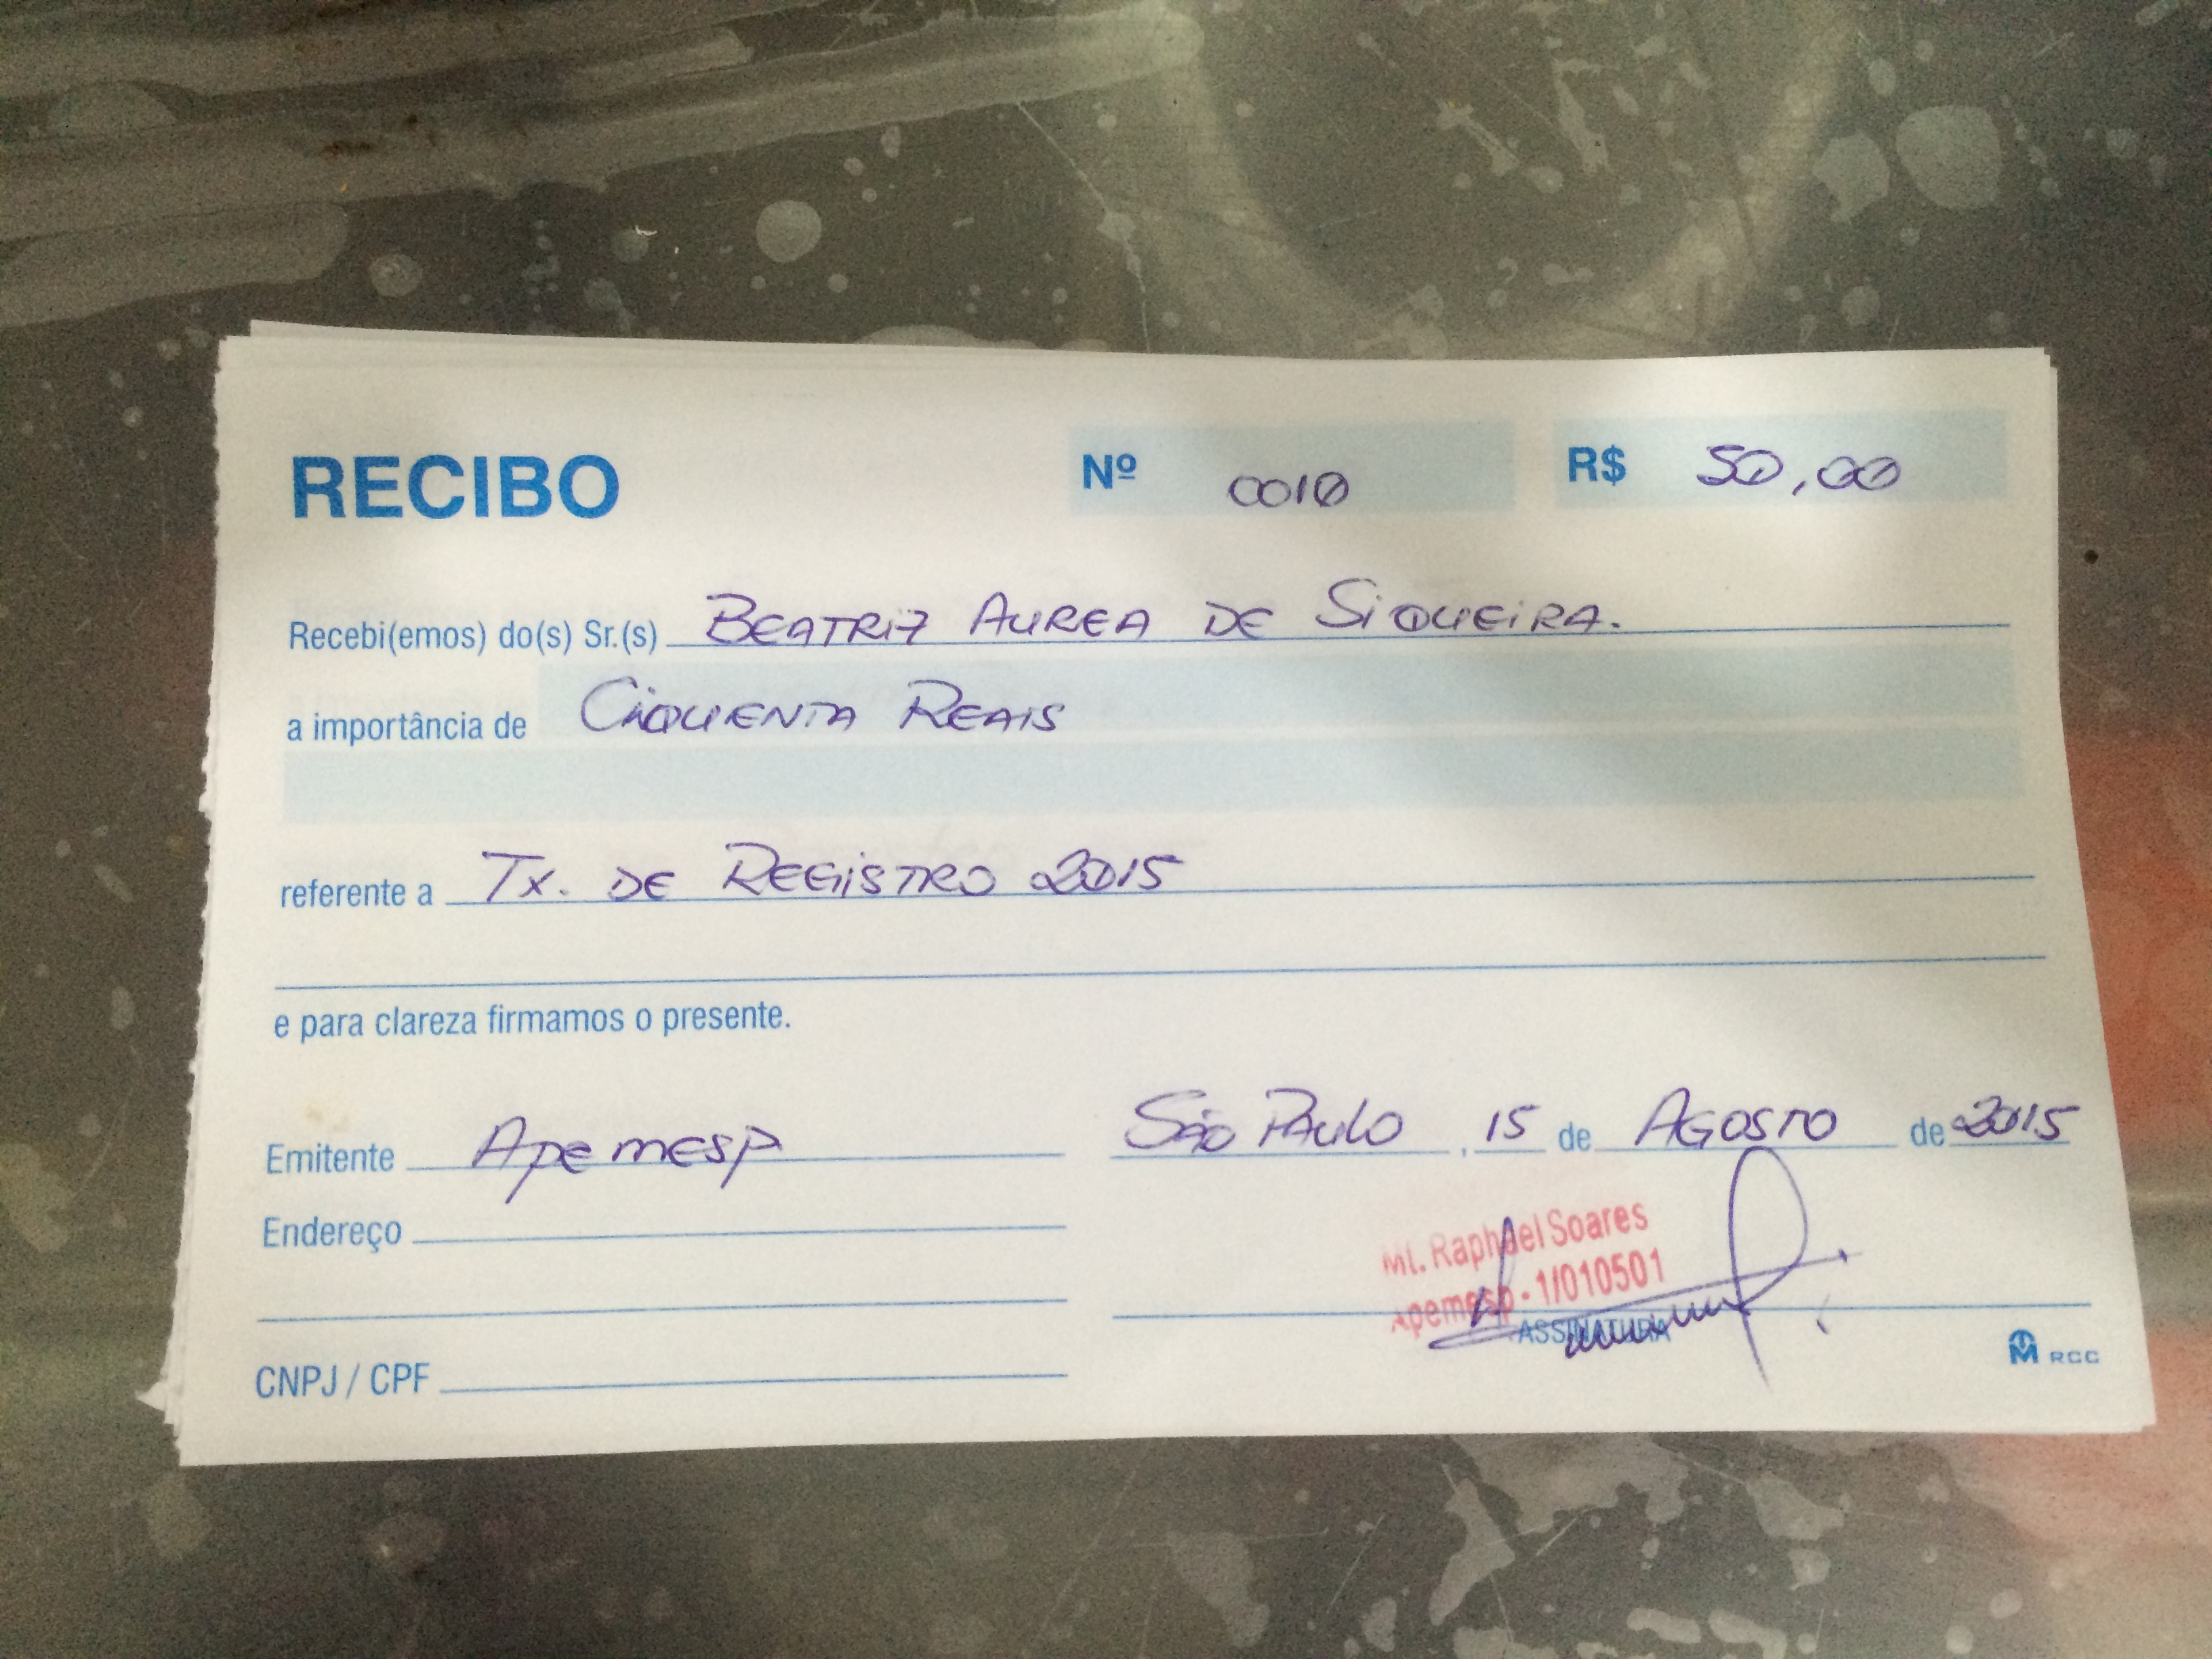 RECIBO Nº 0010 R$ 50,00
Recebi(emos) do(s) Sr.(s) BEATRIZ AUREA DE SIQUEIRA.
a importância de CIQUENTA REAIS
referente a TX. DE REGISTRO 2015
e para clareza firmamos o presente.
Emitente APEMESP SÃO PAULO, 15 de AGOSTO de 2015
Endereço
Mt. Raphael Soares
Apemesp - 1/010501
ASSINATURA
CNPJ / CPF
RCC